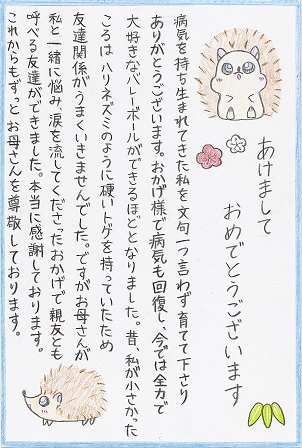 あけまして
おめでとうございます
病気を持ち生まれてきた私を文句一つ言わず育てて下さり
ありがとうございます。おかげ様で病気も回復し、今では全力で
大好きなバレーボールができるほどとなりました。昔、私が小さかった
ころはハリネズミのように硬いトゲを持っていたため
友達関係がうまくいきませんでした。ですがお母さんが
私と一緒に悩み、涙を流してくださったおかげで親友とも
呼べる友達ができました。本当に感謝しております。
これからもずっとお母さんを尊敬しております。